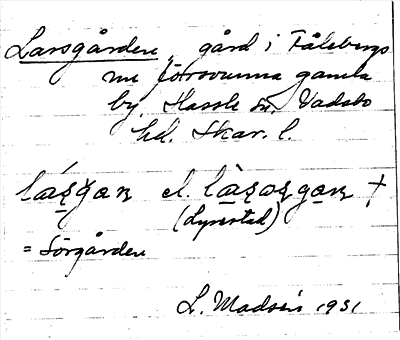 Larsgården, gård i Fålebergs
nu försvunna gamla
by, Hassle sn, Vadsbo
hd. Skar. l.
el.
(Lyrestad)
= Sörgården
L. Madsén 1931